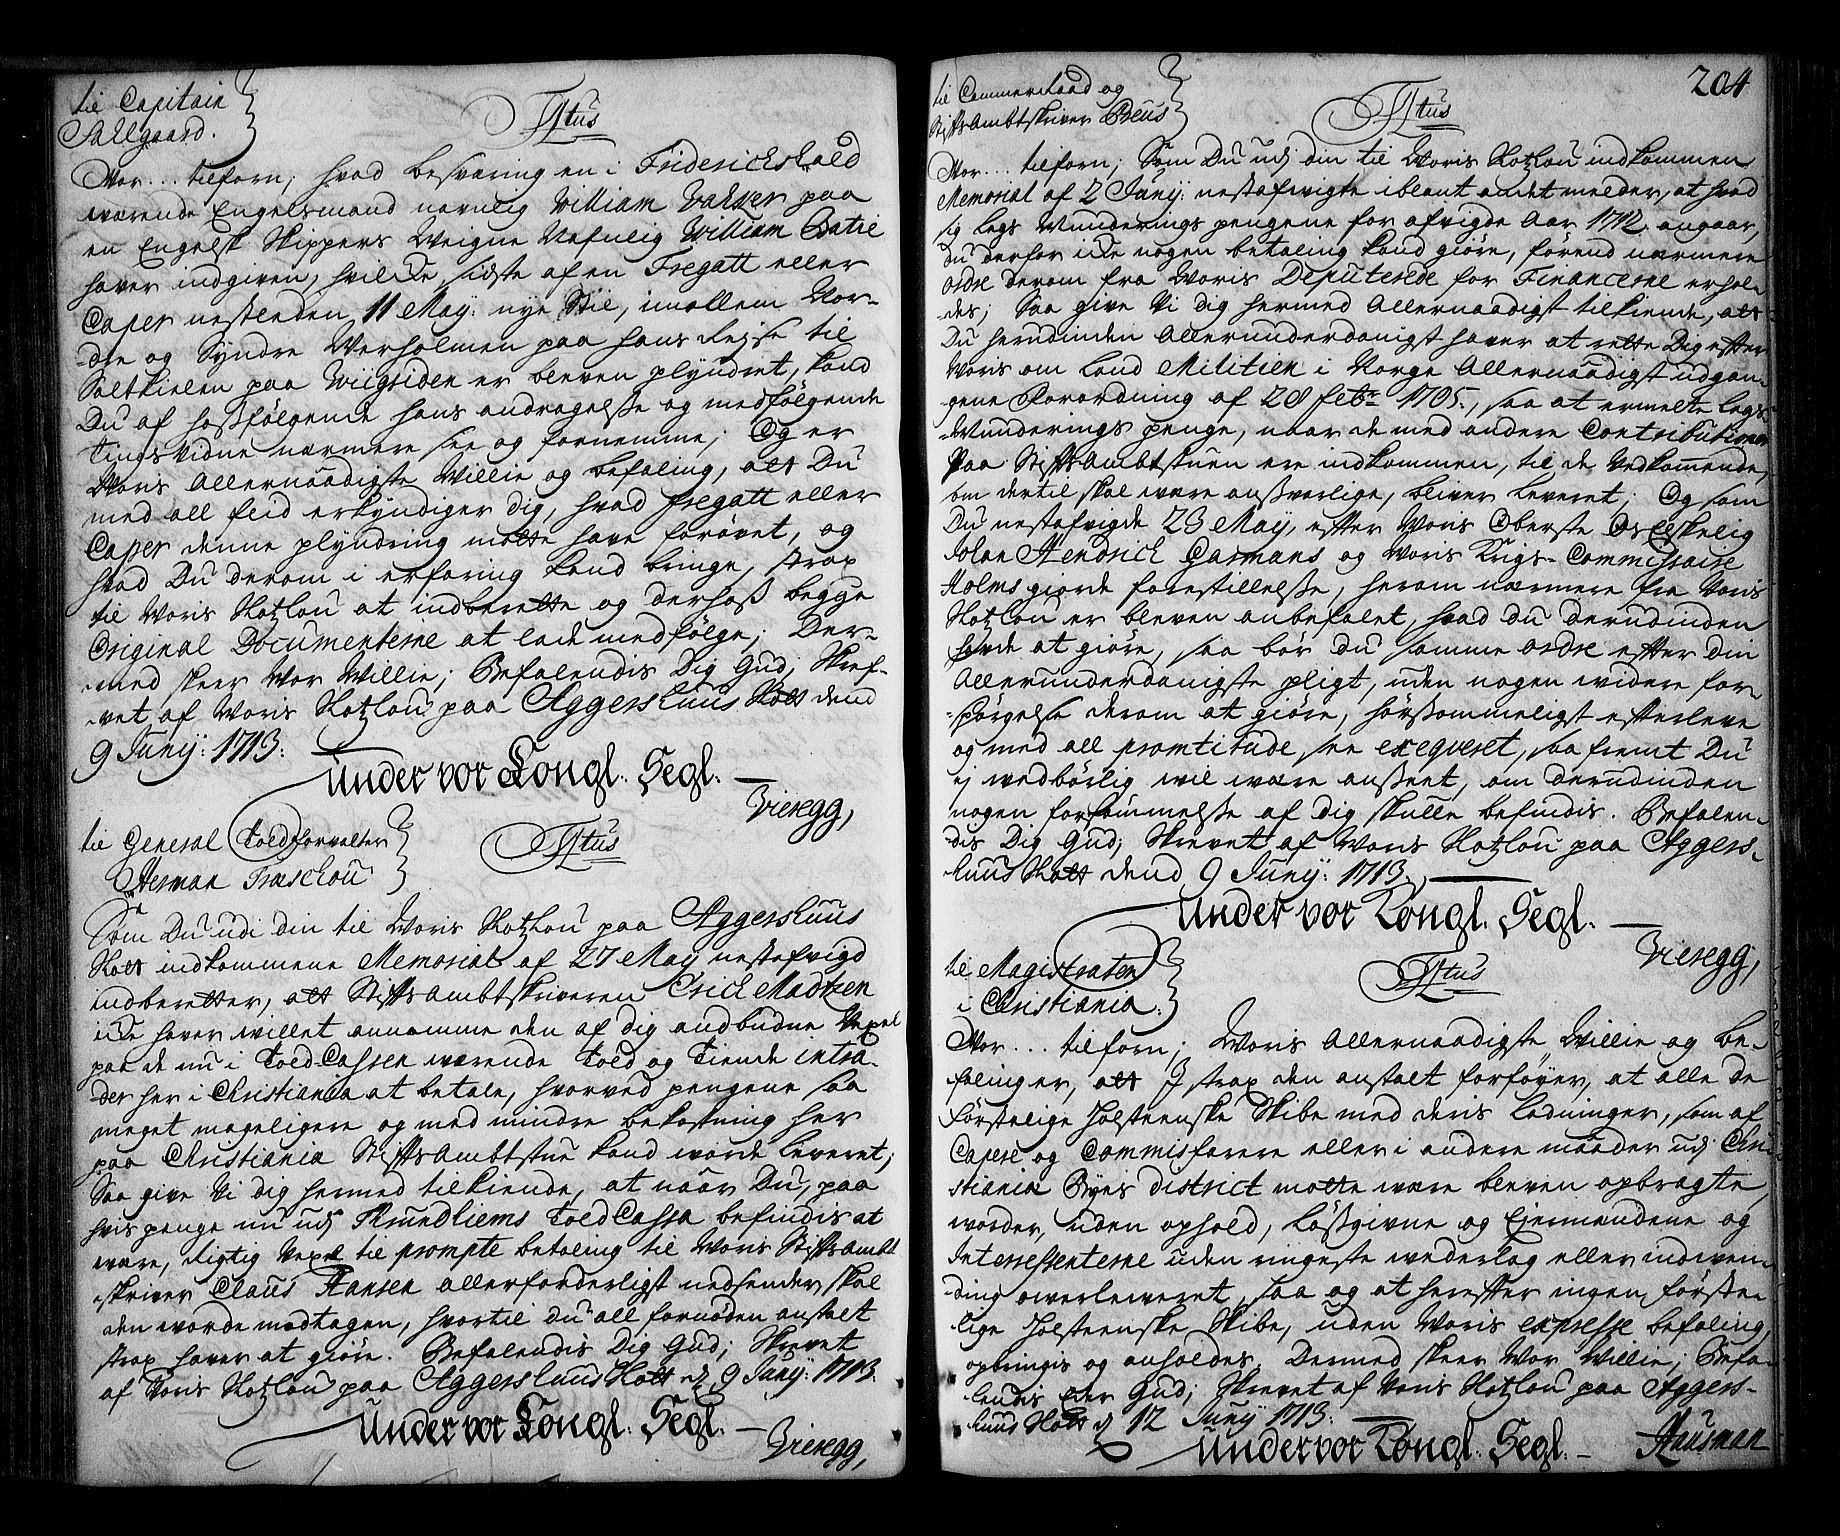 til Capitain
Sallgaard.
Titus
Vor... tilforn; hvad besværing en i Friderichshald
værende Engelsmand navnlig William Valker paa
en Engelsk Skippers Veigne Nefnlig William Batie
hafver indgiven, hvilcke sidste af en Fregatt eller
Caper nestenden 11 May: nye Stiil, imellem Nor-
-dre og Syndre Verholmen paa hans Rejse til
Saltkielen paa Viigsiden er bleven plyndret, kand
Du af hosfølgende hans andragelse og medfølgende
Tingsvidne nærmere see og fornemme; Og er
Voris Allernaadigste Villie og befaling, att Du
med all fliid erkyndiger dig, hvad fregatt eller
Caper denne plyndring motte have forøvet, og
hvad Du derom i erfaring kand bringe, strax
til Voris Slotzlou at indberette og derhoß begge
Original Documenterne at lade medfølge; Der-
-med skeer Vor Villie; Befalendis Dig Gud; Skref-
-vet af Voris Slotzlou paa Aggershuus Slott dend
9 Junij: 1713:
Under vor Kongl. Segl.
Vieregg,
til General Toldforvalter
Herman Træschou
Titus
Som Du udi din til Voris Slotzlou paa Aggershuus
Slott indkommene Memorial af 27 May nestafvigd
indberetter, att StiftsAmbtskriveren Erich Madtzen
icke haver villet annamme den af dig andbudne Vexel
paa de nu i Told-Cassen værende Told og Tiende intra-
der her i Christiania at betale, hvorved pengene saa
meget mageligere og med mindre bekostning her
paa Christiania StiftsAmbtstue kand vorde leveret;
Saa give Vi dig hermed tilkiende, at naar Du, paa
hvis penge nu udj Trundhiems ToldCassa befindis at
være, rigtig Vexel til prompte betaling til Voris StiftsAmbt
-skriver Claus Hansen allerforderligst nedsender, skal
den vorde modtagen, hvortil Du all fornøden anstalt
strax haver at giøre. Befalendis Dig Gud; Skrevet
af Voris Slotzlou paa Aggershuus Slott d. 9 Junij: 1713.
Under vor Kongl. Segl.
Vieregg,
204
til Commerceraad og
StiftsAmbtskriver Beus
Titus
Vor... tilforn; Som Du udj din til Voris Slotzlou indkommen
Memorial af 2 Junij: nestafvigte iblant andet melder, at hvad
sig Legs Munderings pengene for afvigde Aar 1712. angaar,
Du derfor icke nogen betaling kand giøre, førend nærmere
ordre derom fra Voris Deputerede for Financerne erhol-
des; Saa give Vi dig hermed Allernaadigst tilkiende, att
Du herudinden Allerunderdanigst haver at rette Dig efter
Voris om Land Militien i Norge Allernaadigst udgan-
gene Forordning af 28 febr: 1705., saa at ermelte Legs-
Munderings penge, naar de med andre Contributioner
paa StiftsAmbtstuen ere indkommen, til de Vedkommende,
som dertil skal være ansvarlige, bliver leveret; Og som
Du nestafvigde 23 Maij, efter Voris Oberste Os Elskelig
Johan Hendrich Garmans og Voris Krigs-Commissaire
Holms giorde forestillelse, herom nærmere fra Voris
Slotzlou er bleven anbefalet, hvad Du derudinden
hafde at giøre, saa bør Du samme ordre efter din
Allerunderdanigste pligt, uden nogen videre for-
-spørgelse derom at giøre, hørsommeligst efterleve
og med all promtitude, see exeqveret, saa fremt Du
ej vedbørlig vil være anseet, om derudinden
nogen forsømmelse af dig skulle befindis. Befalen-
dis Dig Gud; Skrevet af Voris Slotzlou paa Aggers-
huus Slott dend 9 Junij: 1713.
Under vor Kongl. Segl.
Vieregg,
til Magistraten
i Christiania.
Titus
Vor... tilforn; Voris Allernaadigste Villie og be-
falinger, att I strax den anstalt forføyer, at alle de
Førstelige Holsteenske Skibe med deris ladninger, som af
Capere og Commisfarere eller i andere maader udj Chri-
stiania Byes district motte være bleven opbragte,
vorder, uden ophold, løßgivne og Ejermændene og
Interessenterne uden ringeste vederlag eller indven-
ding overleveret, saa og at herefter ingen Første-
lige Holsteenske Skibe, uden Voris expresse befaling,
opbringis og anholdes. Dermed skeer Vor Villie; Befa-
lendis Eder Gud; Skrevet af Voris Slotzlou paa Aggers-
huus Slott d 12 Junij 1713.
Under vor Kongl. Segl.
Hausman